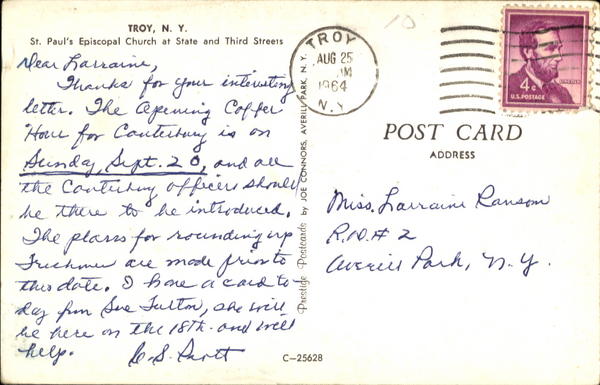 TROY, N. Y.
St. Paul's Episcopal Church at State and Third Streets
Dear Larraine,
Thanks for your interesting
letter. The Opening Coffee
Hour for Canterbury is on
Sunday, Sept. 20, and all
the Canterbury officers should
be there to be introduced.
The plans for rounding up
Freshmen are made prior to
this date. I have a card to-
day from Sue Fulton, she will
be here on the 18th and will
help.
C-25628
Prestige Postcards by JOE CONNORS, AVERILL PARK, N. Y.
TROY
AUG 25
1964
N.Y.
LINCOLN
4c
U.S. POSTAGE
POST CARD
ADDRESS
Miss. Larraine Ransom
R.D. # 2
Averill Park, N.Y.